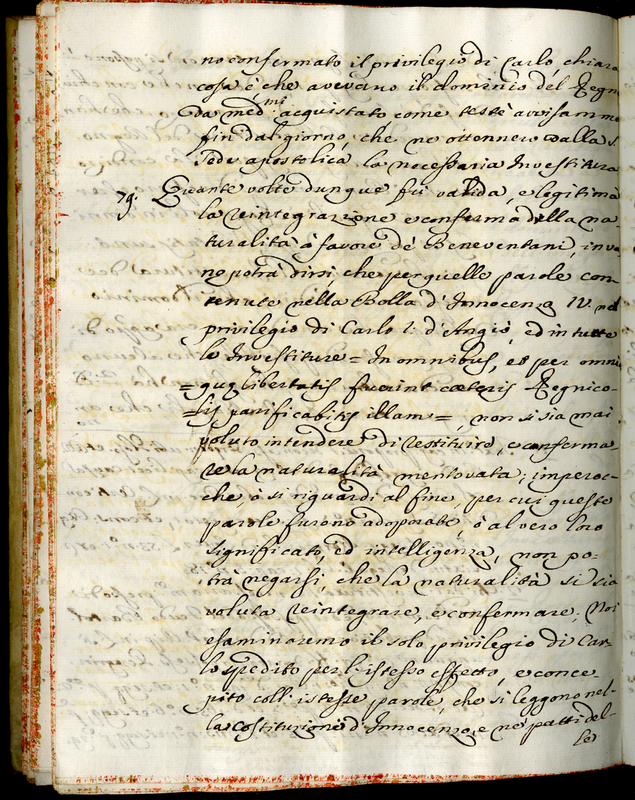 no confermato il privilegio di Carlo, chiara
cosa è che avevano il dominio del Regn
da med.mi acquistato come testè avvisammo
fin dal giorno, che ne ottennero dalla S.
Sede apostolica la necessaria Investitura
79. Quante volte dunque fù valida, e legitima
la reintegrazione e conferma della na-
turalità à favore de' Beneventani, inva
no potrà dirsi, che per quelle parole con-
tenute nella Bolla d'Innocenzo IV. nel
privilegio di Carlo I. d'Angiò, ed in tutte
le Investiture = In omnibus, et per omni
= libertatis fuerint cæteris Regnico-
= parificabitis illam =, non si sia mai
poluto intendere di restituire, e conferma-
re la naturalità mentovata; imperoc-
che, ò si riguardi al fine, per cui queste
parole furono adoporate, ò al vero loro
significato, ed intelligenza, non po-
trà negarsi, che la naturalità si sia
voluta reintegrare, e confermare; Noi
esaminaremo il solo privilegio di Car-
lo spedito per l'istesso effetto, e conce-
pito coll'istesse parole, che si leggono nel-
la costituzione d'Innocenzo, e ne' patti del-
le